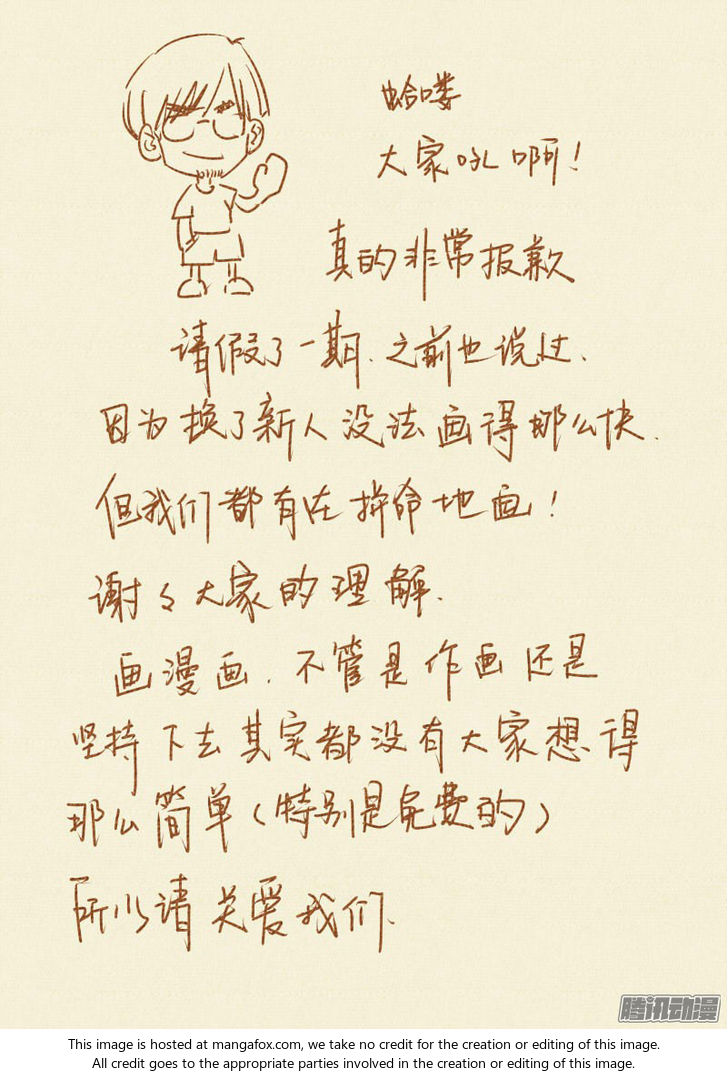 蛤喽
大家吼啊！
真的非常报歉
请假了一期.之前也说过.
因为换了新人没法画得那么快.
但我们都有在拚命地画！
谢々大家的理解.
画漫画.不管是作画还是
坚持下去其实都没有大家想得
那么简单(特别是免费的)
所以请关爱我们.
腾讯动漫
This image is hosted at mangafox.com, we take no credit for the creation or editing of this image.
All credit goes to the appropriate parties involved in the creation or editing of this image.